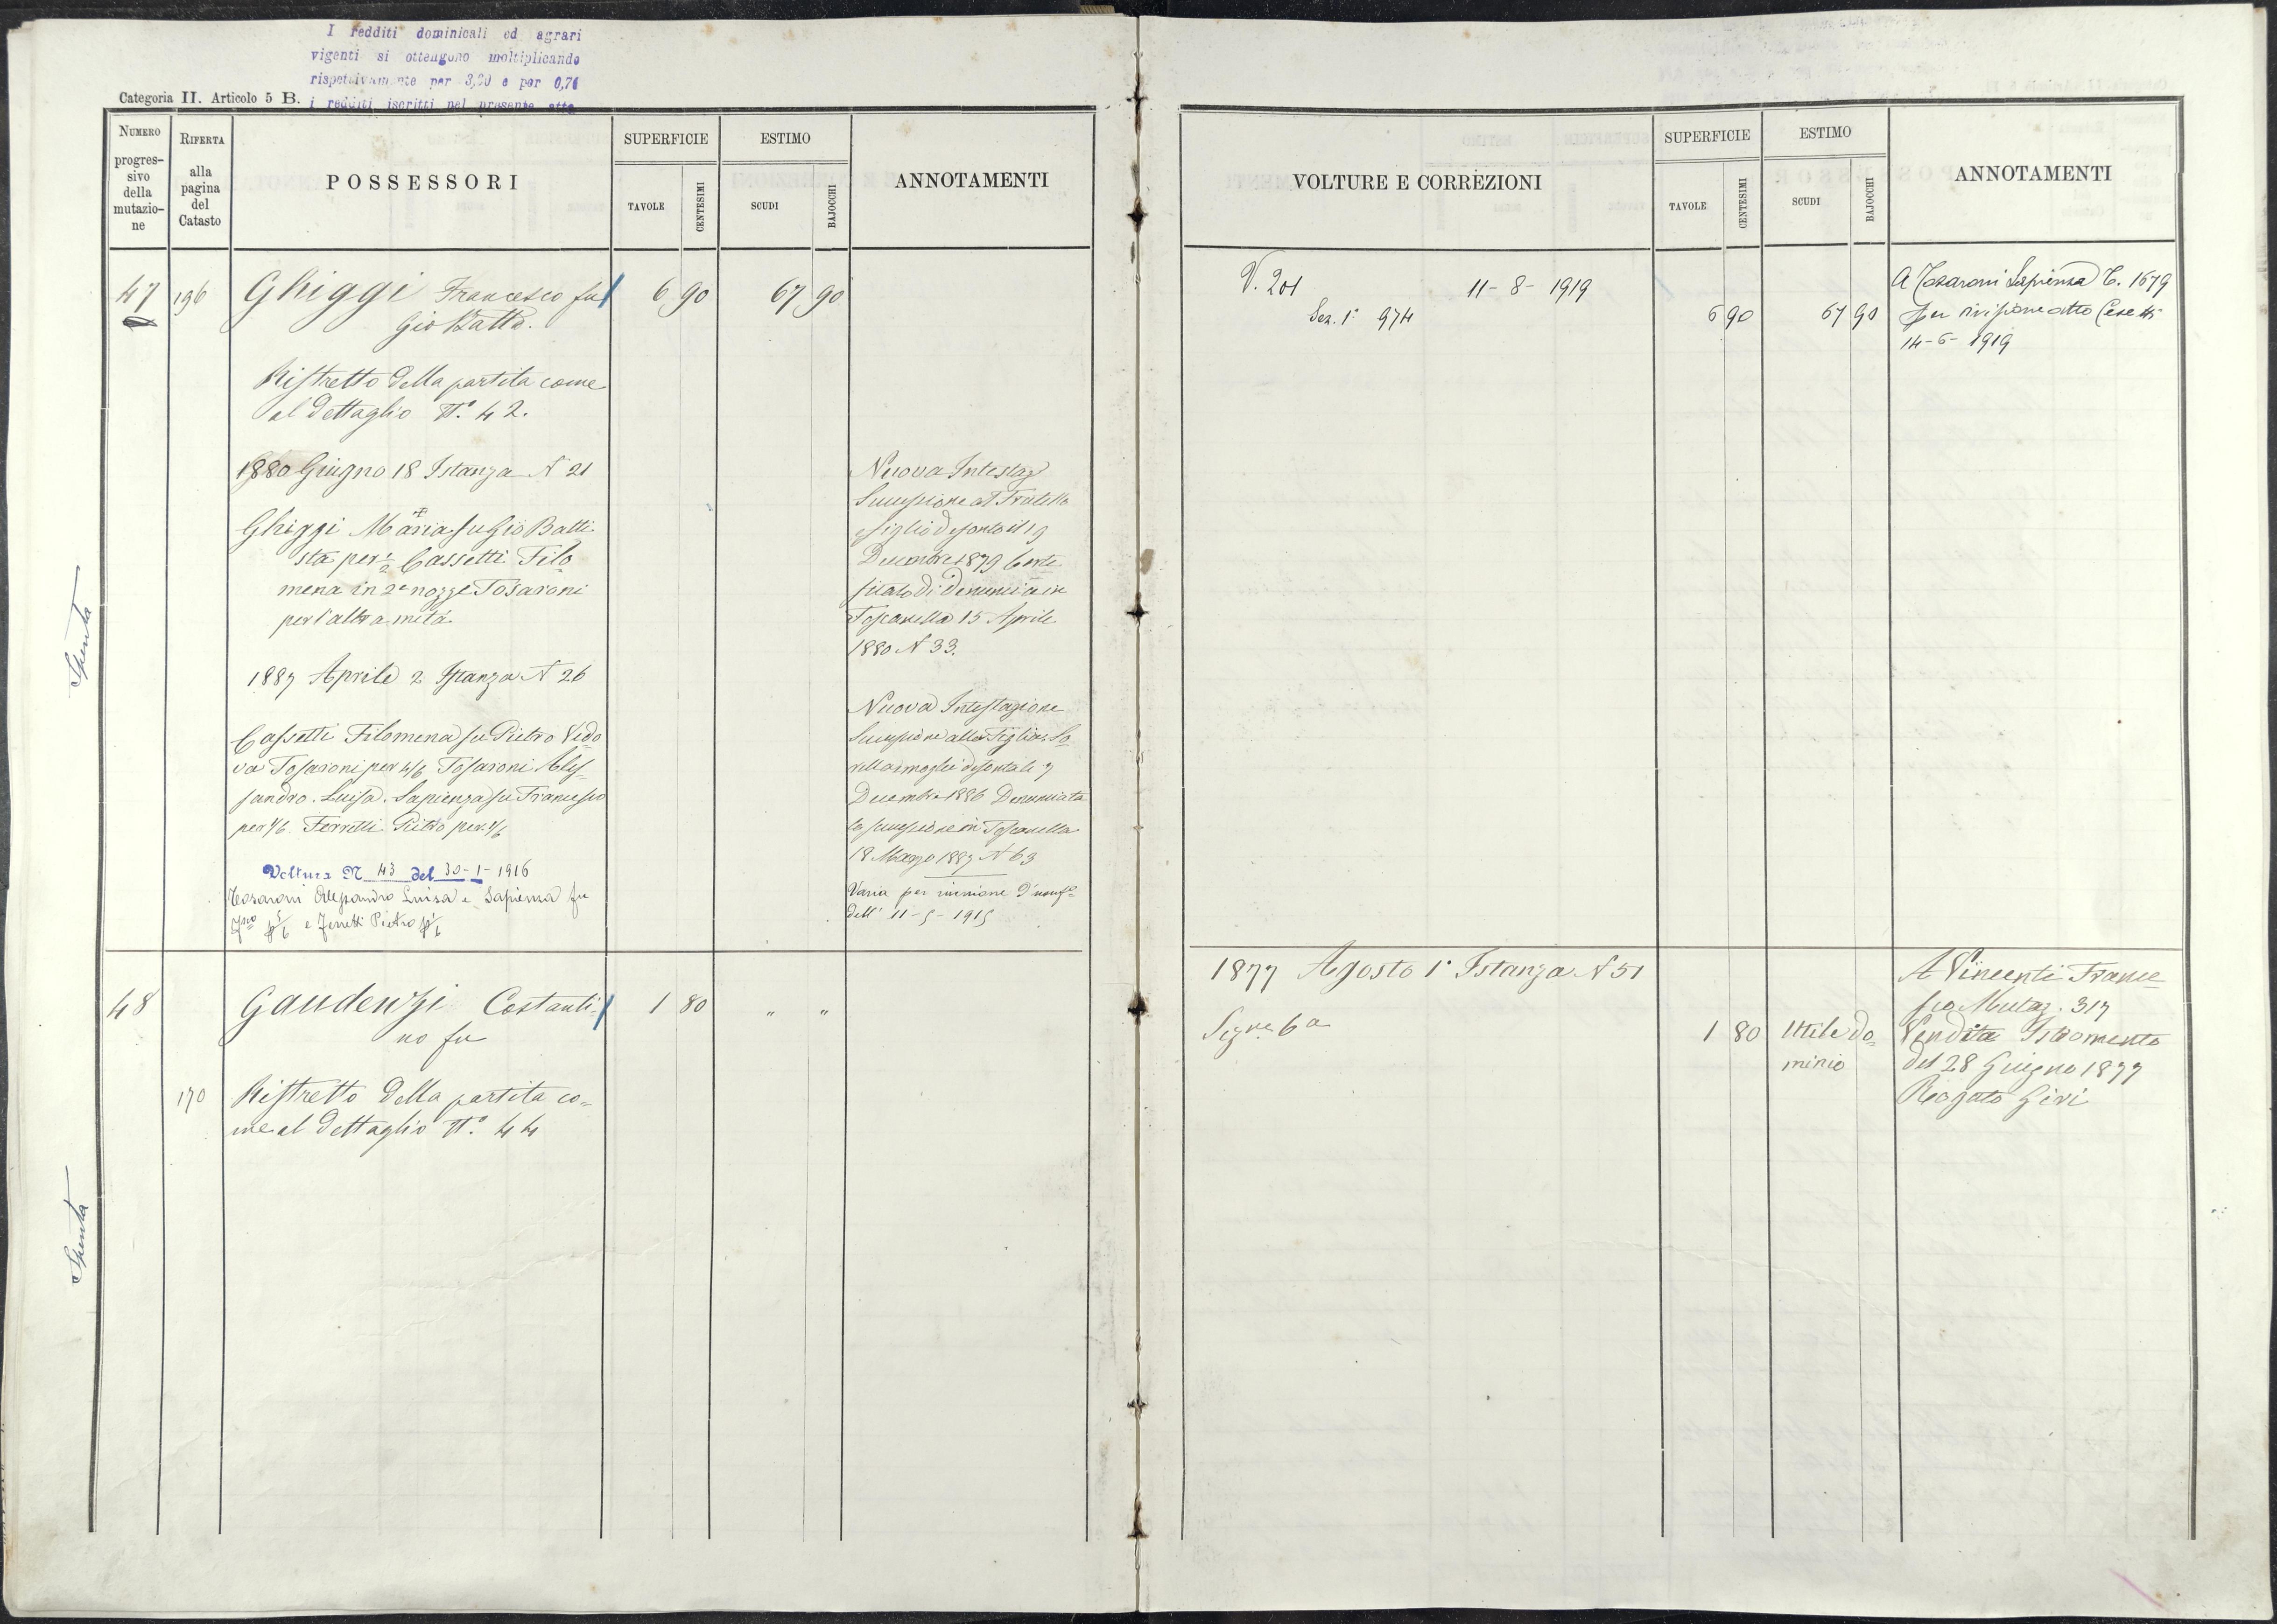 I redditi dominicali ed agrari
vigenti si ottengono moltiplicando
rispettivamente per 3,20 e per 0,76
i redditi iscritti nel presente atto
Categoria II. Articolo 5 B.
NUMERO
progres-
sivo
della
mutazio-
ne
RIFERTA
alla
pagina
del
Catasto
POSSESSORI
SUPERFICIE
TAVOLE
CENTESIMI
ESTIMO
SCUDI
BAJOCCHI
ANNOTAMENTI
47 196 Ghiggi Francesco fu 6 90 67 90
Gio Batta.
Ristretto della partita come
al Dettaglio N.° 42.
1880 Giugno 18 Istanza N 21
Ghiggi Maria fu Gio Batti
sta per ½ Cassetti Filo
mena in 2e nozze Tosaroni
per l'altra metà
1887 Aprile 2 Istanza N 26
Cassetti Filomena fu Pietro Vedo
va Tosaroni per 4/6 Tosaroni Ales
sandro. Luisa. Sapienza fu Francesco
per 1/6 Ferretti Pietro per 1/6
Voltura N 43 del 30-1-1916
Tosaroni Alessandro Luisa e Sapienza fu
Fco p 5/6 e Ferretti Pietro p 1/6
Nuova Intestaz
Successione al Fratello
e figlio defonto il 19
Decembre 1879 Certi
ficato di Denuncia in
Toscanella 15 Aprile
1880 N 33.
Nuova Intestazione
Successione alla Figlia. So
rella e moglie defonta li 7
Decembre 1886 Denunciata
la successione in Toscanella
18 Marzo 1887 N 63
Varia per riunione d'usuf°
dell' 11-5-1915
Spenta
48 Gaudenzi Costanti= 1 80 " "
no fu
170 Ristretto della partita co=
me al dettaglio N.° 44
Spenta
VOLTURE E CORREZIONI
SUPERFICIE
TAVOLE
CENTESIMI
ESTIMO
SCUDI
BAJOCCHI
ANNOTAMENTI
V. 201 11-8-1919
Sez. 1ª 974 6 90 67 90
A Tosaroni Sapienza C. 1679
per divisione atto Cesetti
14-6-1919
1877 Agosto 1° Istanza N 51
Segre 6a 1 80 Utile do=
minio
A Vincenti France=
sco Mutaz. 317
Vendita Istromento
del 28 Giugno 1877
Rogato Giri